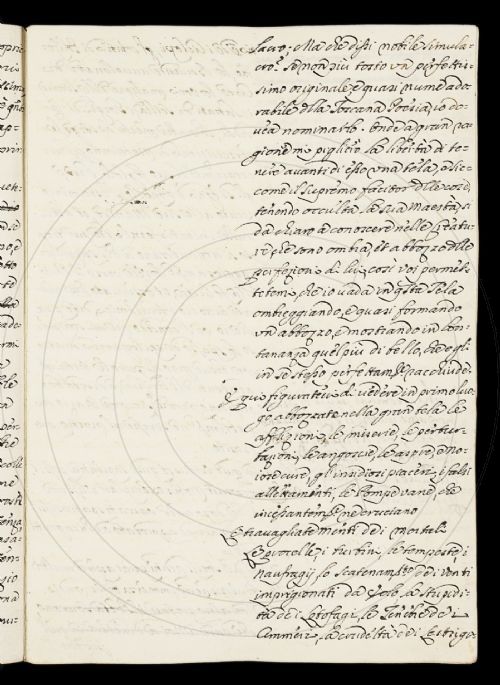 sacro; Ma che dissi nobile simula-
cro? se non più tosto un perfettis-
simo originale, e quasi nume ado-
rabile della Toscana Poesia, io do-
vea nominarlo. Onde a gran ra-
gione mi piglierò la libertà di te-
nere avanti di esso una tela, e sic-
come il supremo facitor delle cose,
tenendo occulta la sua Maestà, si
dà chiaro a conoscere nelle Creatu-
re che sono ombra, et abbozzo delle
perfezioni di lui, così voi permet-
tetemi, che io vada in questa Tela
ombreggiando, e quasi formando
un abbozzo, e mostrando in lon-
tananza quel più di bello, che egli
in se stesso perfettamte racchiude.
E qui figuratevi di vedere in primo luo-
go abbozzate nella gran tela le
afflizioni, le miserie, le pertur-
bazioni, le angoscie, le aspre, e no-
iose cure, gl'insidiosi piaceri, i falsi
allettamenti, le Pompe vane, che
incessantemte ne crucciano
E travagliate menti dei mortali.
Le procelle, i turbini, le tempeste, i
Naufragij, lo scatenamto dei venti
imprigionati da Eolo, la stupidi-
tà dei Lotofagi, le Tenebre dei
Cimmerij, la crudeltà dei Lestrigo-